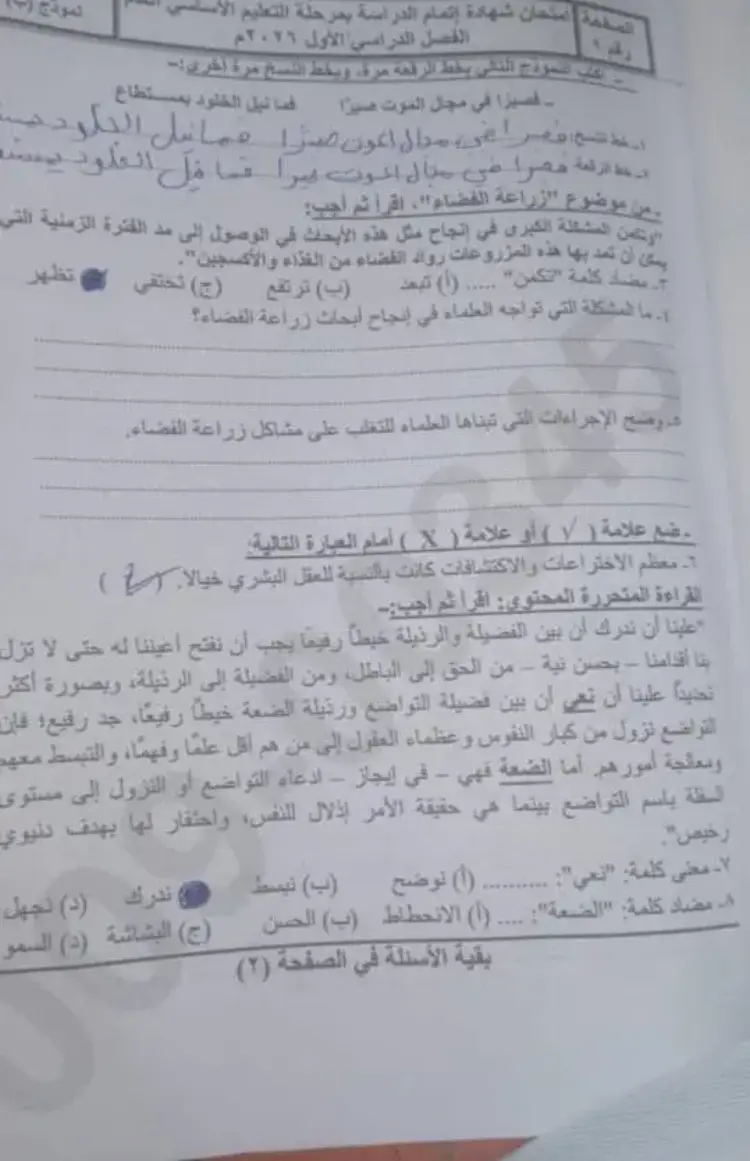 الصفحة رقم ١
امتحان شهادة إتمام الدراسة بمرحلة التعليم الأساسي العام
الفصل الدراسي الأول ٢٠٢٦م
نموذج (ب)
- اكتب النموذج التالي بخط الرقعة مرة، وبخط النسخ مرة أخرى:-
- فصبرًا في مجال الموت صبرًا فما نيل الخلود بمستطاع
١- خط النسخ: فصبرا في مجال الموت صبرًا فما نيل الخلود
٢- خط الرقعة: فصبرا في مجال الموت صبرا فما نيل الخلود
- من موضوع "زراعة الفضاء"، اقرأ ثم أجب:
"وتكمن المشكلة الكبرى في إنجاح مثل هذه الأبحاث في الوصول إلى مد الفترة الزمنية التي
يمكن أن تمد بها هذه المزروعات رواد الفضاء من الغذاء والأكسجين".
٣- مضاد كلمة "تكمن" ..... (أ) تبعد (ب) ترتفع (ج) تختفي تظهر
٤- ما المشكلة التي تواجه العلماء في إنجاح أبحاث زراعة الفضاء؟
٥- وضح الإجراءات التي تبناها العلماء للتغلب على مشاكل زراعة الفضاء.
- ضع علامة ( √ ) أو علامة ( X ) أمام العبارة التالية:
٦- معظم الاختراعات والاكتشافات كانت بالنسبة للعقل البشري خيالا. ( )
القراءة المتحررة المحتوى: اقرأ ثم أجب:-
"علينا أن ندرك أن بين الفضيلة والرذيلة خيطًا رفيعًا يجب أن نفتح أعيننا له حتى لا تزل
بنا أقدامنا – بحسن نية – من الحق إلى الباطل، ومن الفضيلة إلى الرذيلة، وبصورة أكثر
تحديدًا علينا أن نعي أن بين فضيلة التواضع ورذيلة الضعة خيطًا رفيعًا، جد رفيع؛ فإن
التواضع نزول من كبار النفوس وعظماء العقول إلى من هم أقل علمًا وفهمًا، والتبسط معهم
ومعالجة أمورهم. أما الضعة فهي – في إيجاز – ادعاء التواضع أو النزول إلى مستوى
السفلة باسم التواضع بينما هي حقيقة الأمر إذلال للنفس، واحتقار لها بهدف دنيوي
رخيص".
٧- معنى كلمة: "نعي": .......... (أ) نوضح (ب) نبسط ندرك (د) نجهل
٨- مضاد كلمة: "الضعة": .... (أ) الانحطاط (ب) الحسن (ج) البشاشة (د) السمو
بقية الأسئلة في الصفحة (٢)